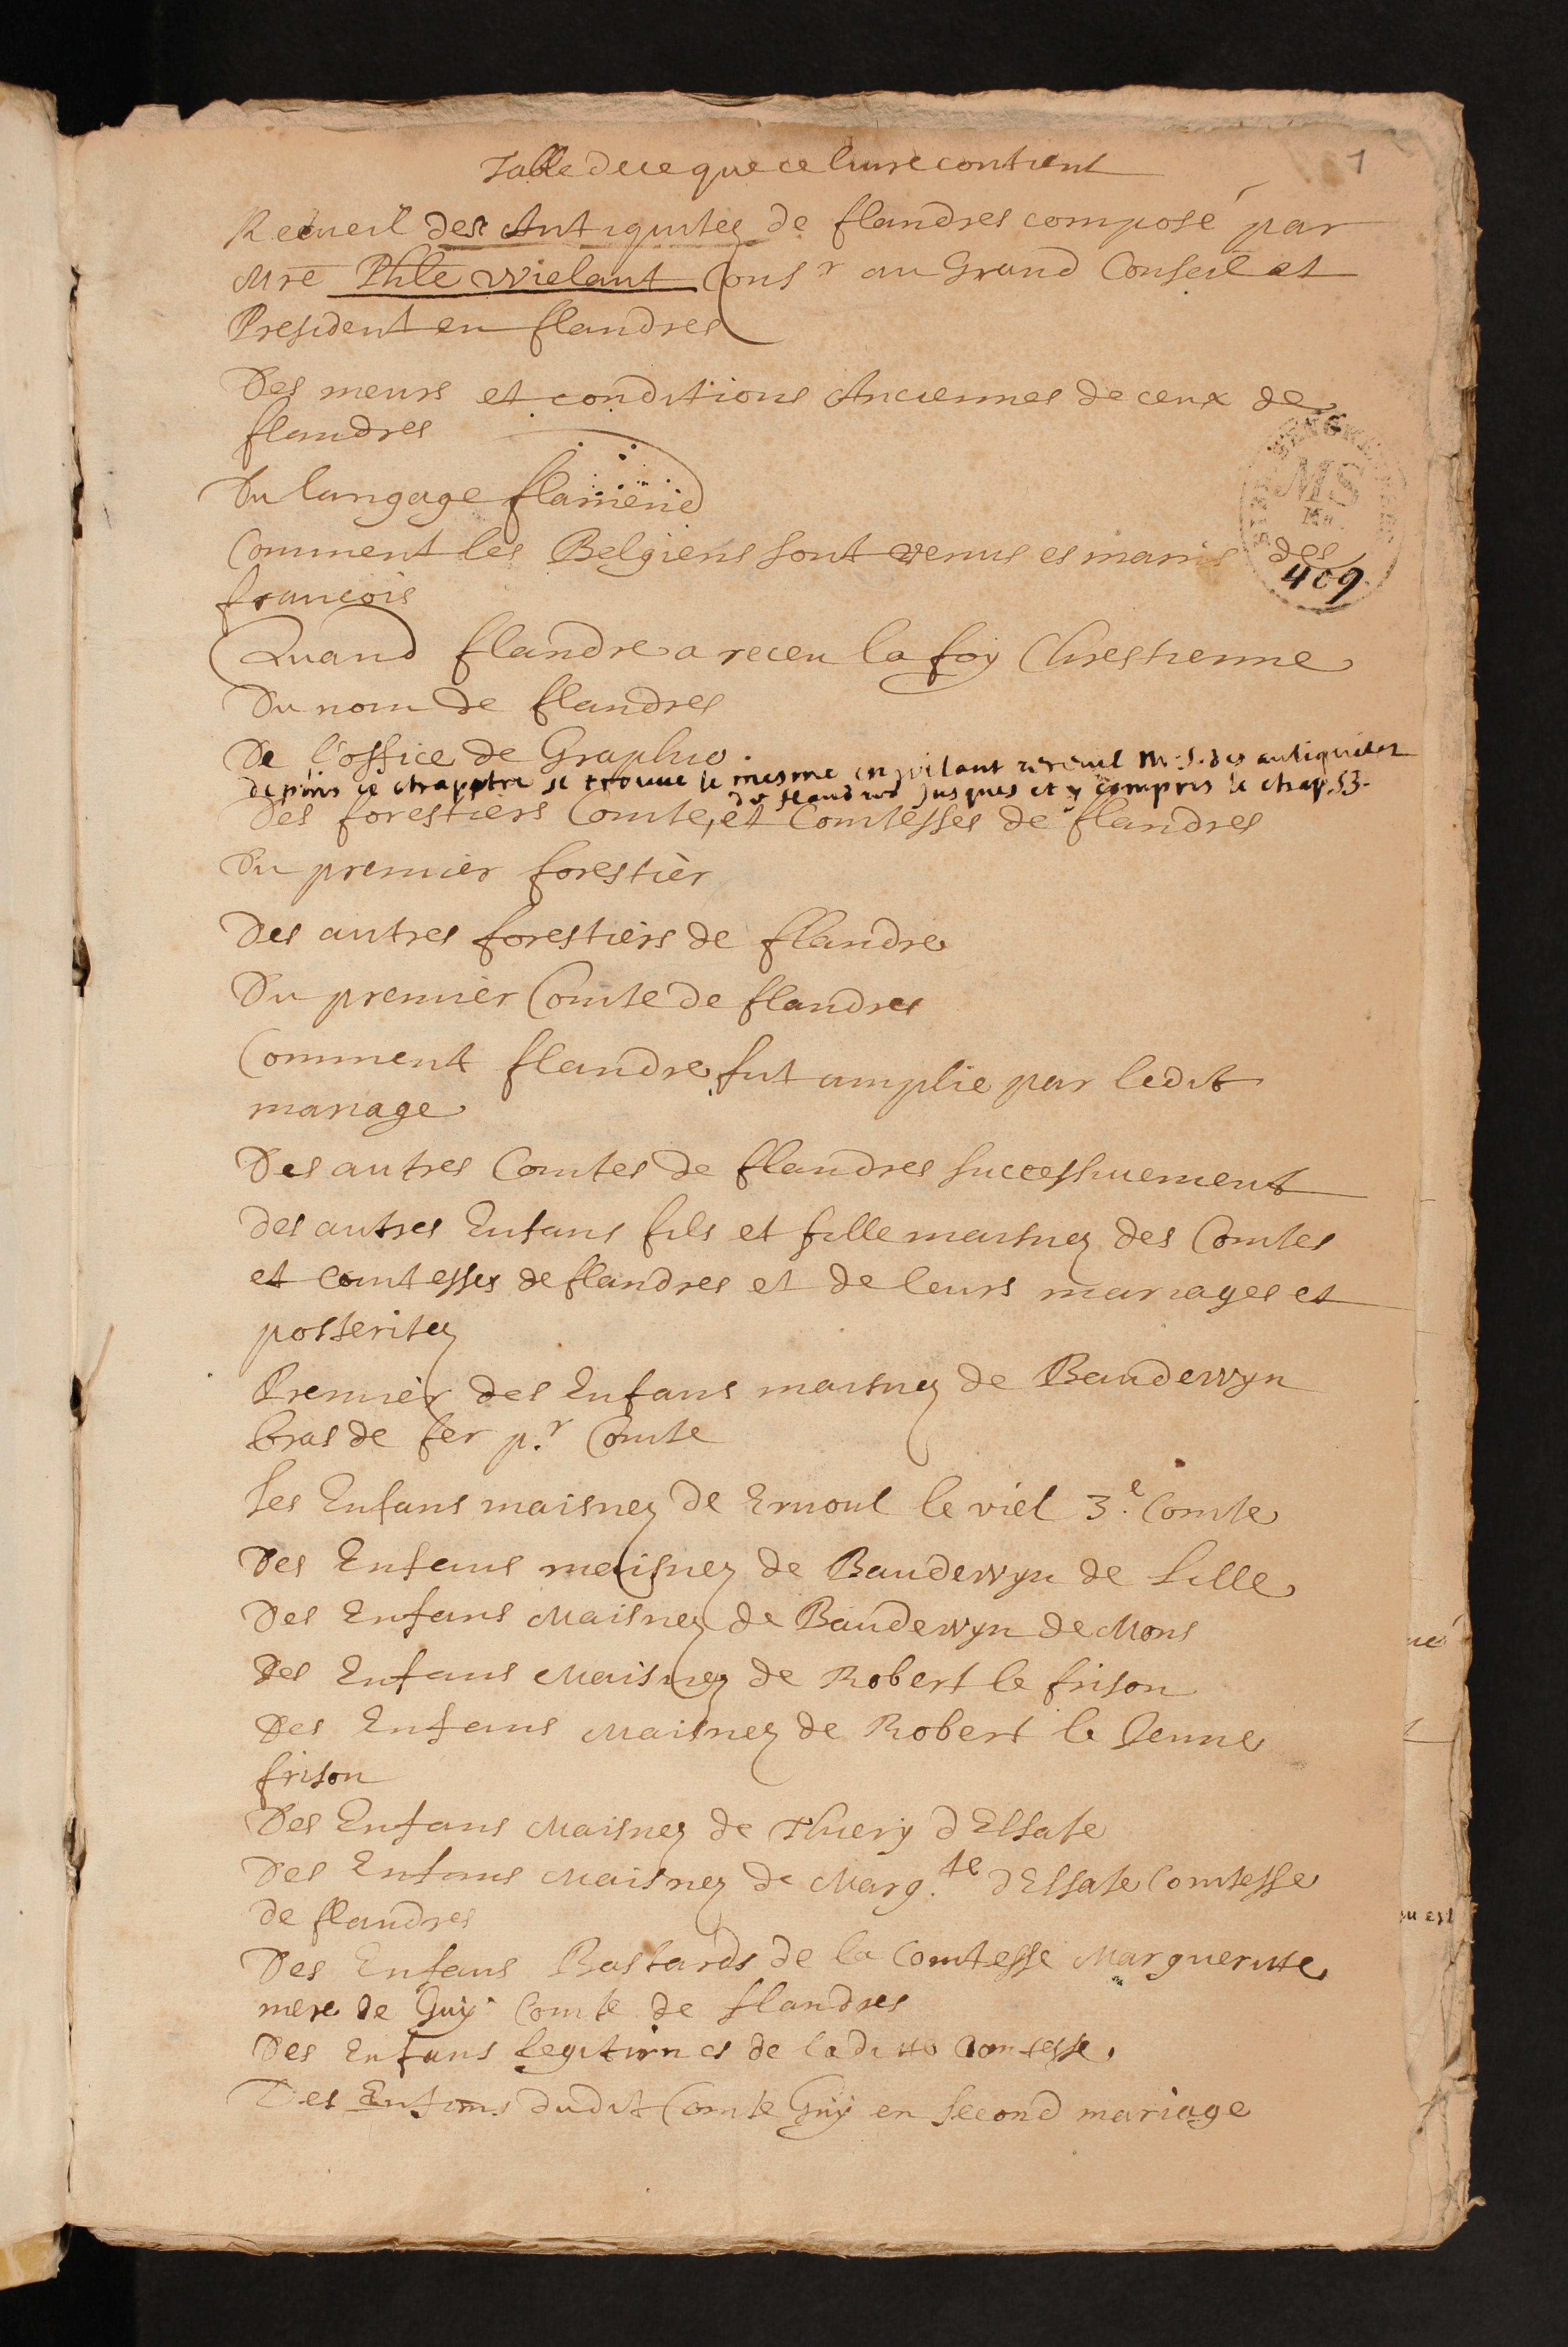 Table de ce que ce livre contient
1
Recueil des Antiquitez de flandres composé par
Mre Phle Wielant Consr au Grand Conseil et
President en flandres
Des meurs et conditions Anciennes de ceux de
flandres
Du langage flameng
Comment les Belgiens sont venus es mains des
francois
Quand flandre a receu la foy Chrestienne
Du nom de flandres
De l'office de Graphio.
depuis ce chapptre se trouue le mesme en wilant recueil M.S. des antiquitez
de flandres jusques et y compris le chap. 53.
Des forestiers Comte, et Comtesses de flandres
Du premier forestier
Des autres forestiers de flandre
Du premier Comte de flandres
Comment flandre fut amplie par ledit
mariage
Des autres Comtes de flandres successivement
des autres Enfans fils et fille maisnez des Comtes
et comtesses de flandres et de leurs mariages et
posteritez
Premier des Enfans maisnez de Baudewyn
bras de fer p.r Comte
Les Enfans maisnez de Ernoul le viel 3.e Comte
Des Enfans maisnez de Baudewyn de Lille
Des Enfans Maisnez de Baudewyn de Mons
Des Enfans Maisnez de Robert le frison
Des Enfans Maisnez de Robert le Jeune
frison
Des Enfans Maisnez de Thiery d'Elsate
Des Enfans Maisnez de Marg.te d'Elsate Comtesse
de flandres
Des Enfans Bastards de la Comtesse Margueritte
mere de Guy Comte de flandres
Des Enfans legitimes de laditte Comtesse.
Des Enfans dudit Comte Guy en second mariage
MS
409